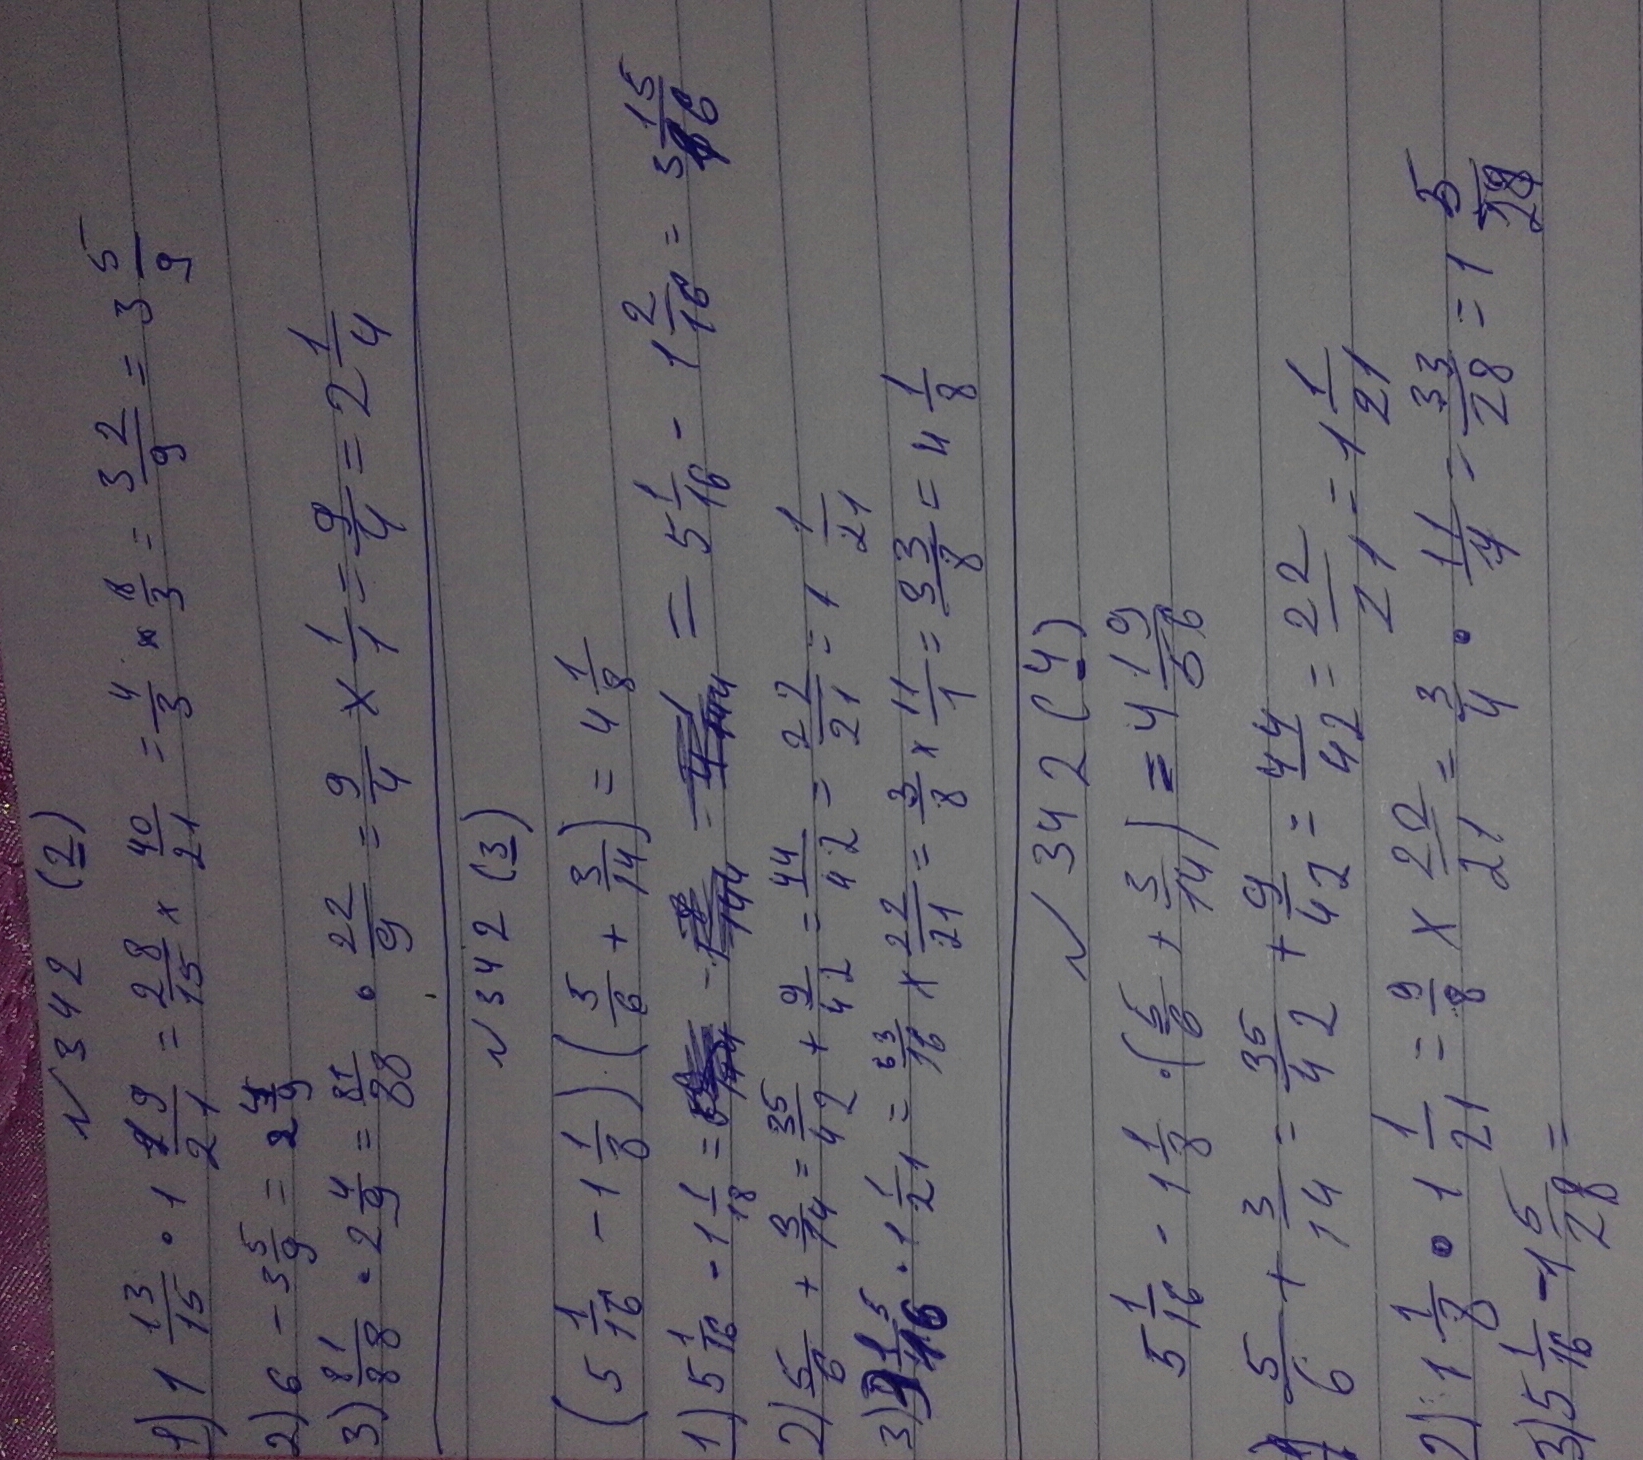 N 342 (2)
1) 1 13/15 · 1 19/21 = 28/15 × 40/21 = 4/3 × 8/3 = 3 2/9 = 3 5/9
2) 6 - 3 5/9 = 2 4/9
3) 81/88 · 2 4/9 = 81/88 · 22/9 = 9/4 × 1/1 = 9/4 = 2 1/4
N 342 (3)
(5 1/16 - 1 1/8) · (5/6 + 3/14) = 4 1/8
1) 5 1/16 - 1 1/18 = = 5 1/16 - 1 2/16 = 3 15/16
2) 5/6 + 3/14 = 35/42 + 9/42 = 44/42 = 22/21 = 1 1/21
3) 3 15/16 · 1 1/21 = 63/16 × 22/21 = 3/8 × 11/1 = 33/8 = 4 1/8
N 342 (4)
5 1/16 - 1 1/8 · (5/6 + 3/14) = 4 19/56
1) 5/6 + 3/14 = 35/42 + 9/42 = 44/42 = 22/21 = 1 1/21
2) 1 1/8 · 1 1/21 = 9/8 × 22/21 = 3/4 · 11/4 = 33/28 = 1 5/28
3) 5 1/16 - 1 5/28 =